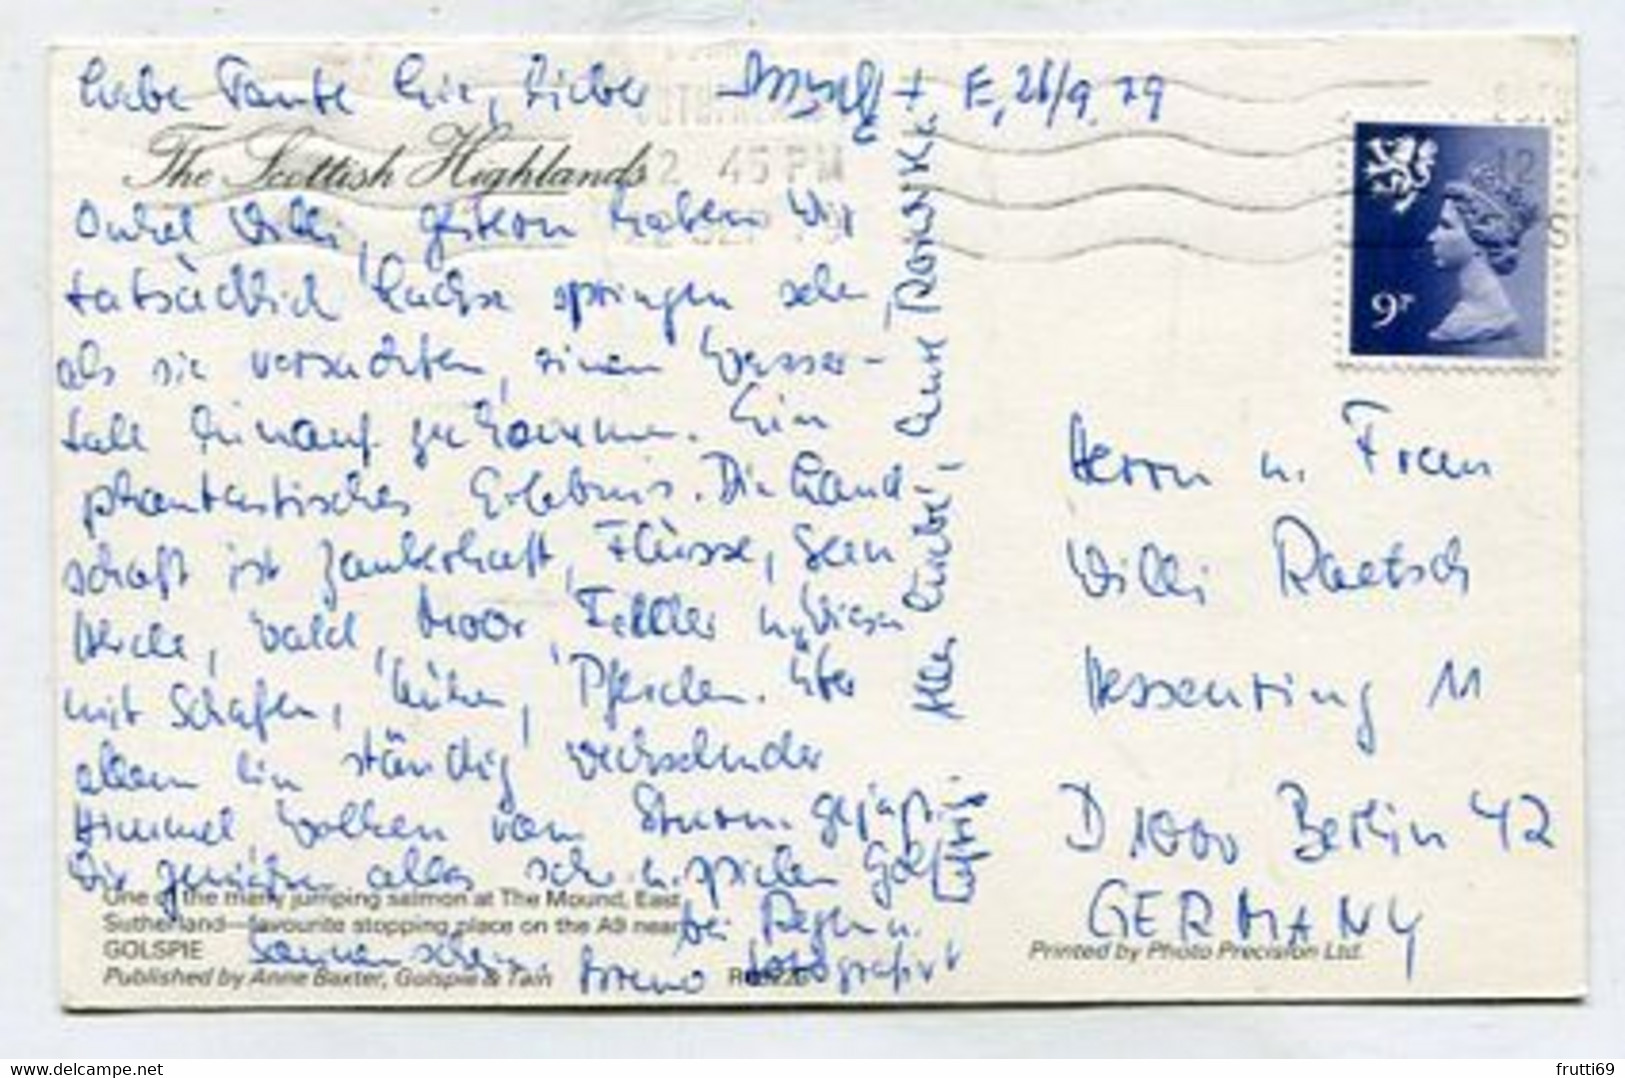 Liebe Tante Evi, Lieber
E, 26/9.79
The Scottish Highlands
2 45 PM
Onkel Willi, gestern haben wir
tatsächlich Lachse springen sehen
als sie versuchten, einen Wasser-
fall hinauf zu kommen. Ein
phantastisches Erlebnis. Die Land-
schaft ist zauberhaft, Flüsse, Seen
Berge, Wald, Moor, Felder u. Wiesen
mit Schafen, Kühen, Pferden. Über
allem ein ständig wechselnder
Himmel Wolken vom Sturm gejagt.
Wir genießen alles sehr u. spielen Golf
bei Regen u.
Sonnenschein. fotografiert
One of the many jumping salmon at The Mound, East
Sutherland—favourite stopping place on the A9 near
GOLSPIE
Published by Anne Baxter, Golspie & Tain
9P
Herrn u. Frau
Willi Raetsch
Hessenring 11
D 1000 Berlin 42
GERMANY
Printed by Photo Precision Ltd.
frutti69